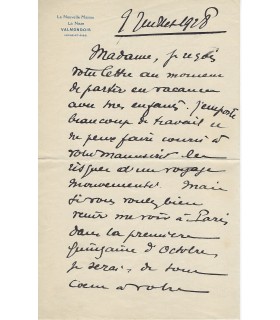 La Naze
VALMONDOIS
Madame, je reçois
votre lettre au moment
de partir en vacances
avec mes enfants. J'emporte
beaucoup de travail et
ne peux faire courir à
votre manuscrit les
risques d'un voyage
mouvementé. Mais
si vous voulez bien
venir me voir à Paris
dans la première
quinzaine d'Octobre,
je serai de tout
coeur à votre